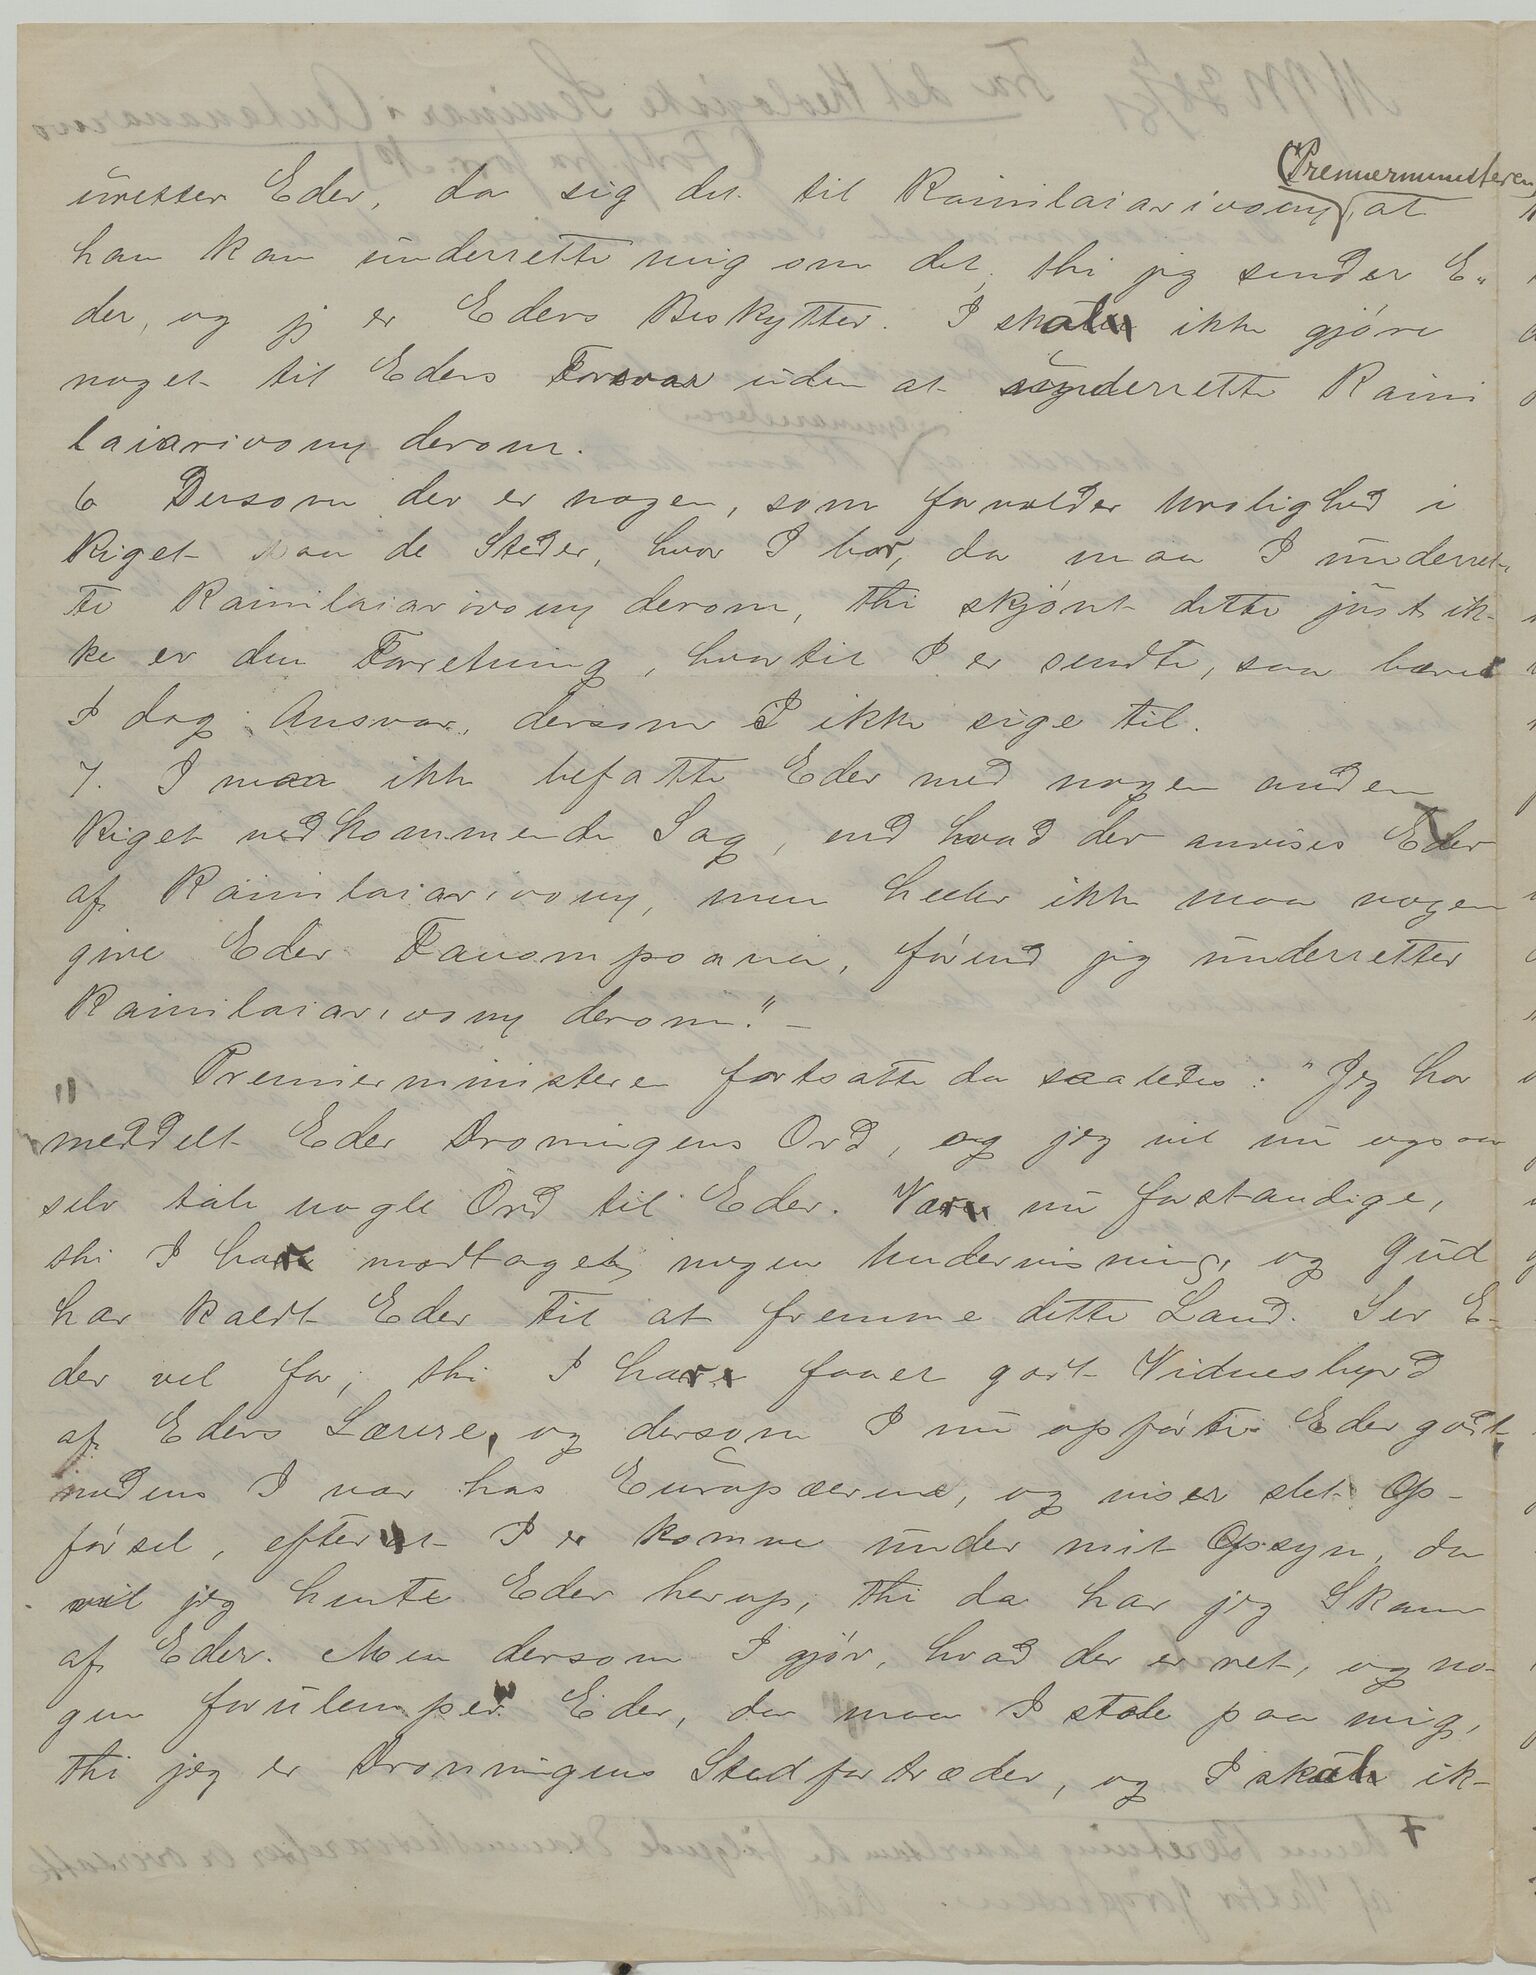 (Premierministeren)
uretter Eder, da sig det til Rainilaiarivony, at
han kan underrette mig om det, thi jeg sender E-
der, og jeg er Eders Beskytter. I skal ikke gjöre
noget til Eders Forsvar uden at underrette Raini
laiarivony derom.
6 Dersom der er nogen, som forvolder Urolighed i
Riget paa de Steder, hvor I bor, da maa I underret-
te Rainilaiarivony derom, thi skjönt dette just ik-
ke er den Forretning, hvortil I er sendte, saa bærer
I dog Ansvar, dersom I ikke sige til.
7. I maa ikke befatte Eder med nogen anden
Riget vedkommende Sag, end hvad der anvises Eder
af Rainilaiarivony, men heller ikke maa nogen
give Eder Fanompoana, förend jeg underretter
Rainilaiarivony derom." -
" Premierministeren fortsatte da saaledes: "Jeg har
meddelt Eder Dronningens Ord, og jeg vil nu ogsaa
selv tale nogle Ord til Eder. Vær nu forstandige,
thi I har modtaget nogen Undervisning, og Gud
har kaldt Eder til at fremme dette Land. Ser E-
der vel for, thi I har faaet godt Vidnesbyrd
af Eders Lærere, og dersom I nu opförte Eder godt,
medens I var hos Europæerne, og viser slet Op-
försel, efterat I er komne under mit Opsyn, da
vil jeg hente Eder herop, thi da har jeg Skam
af Eder. Men dersom I gjör, hvad der er ret, og no-
gen forulemper Eder, da maa I stole paa mig,
thi jeg er Dronningens Stedfortræder, og I skal ik-